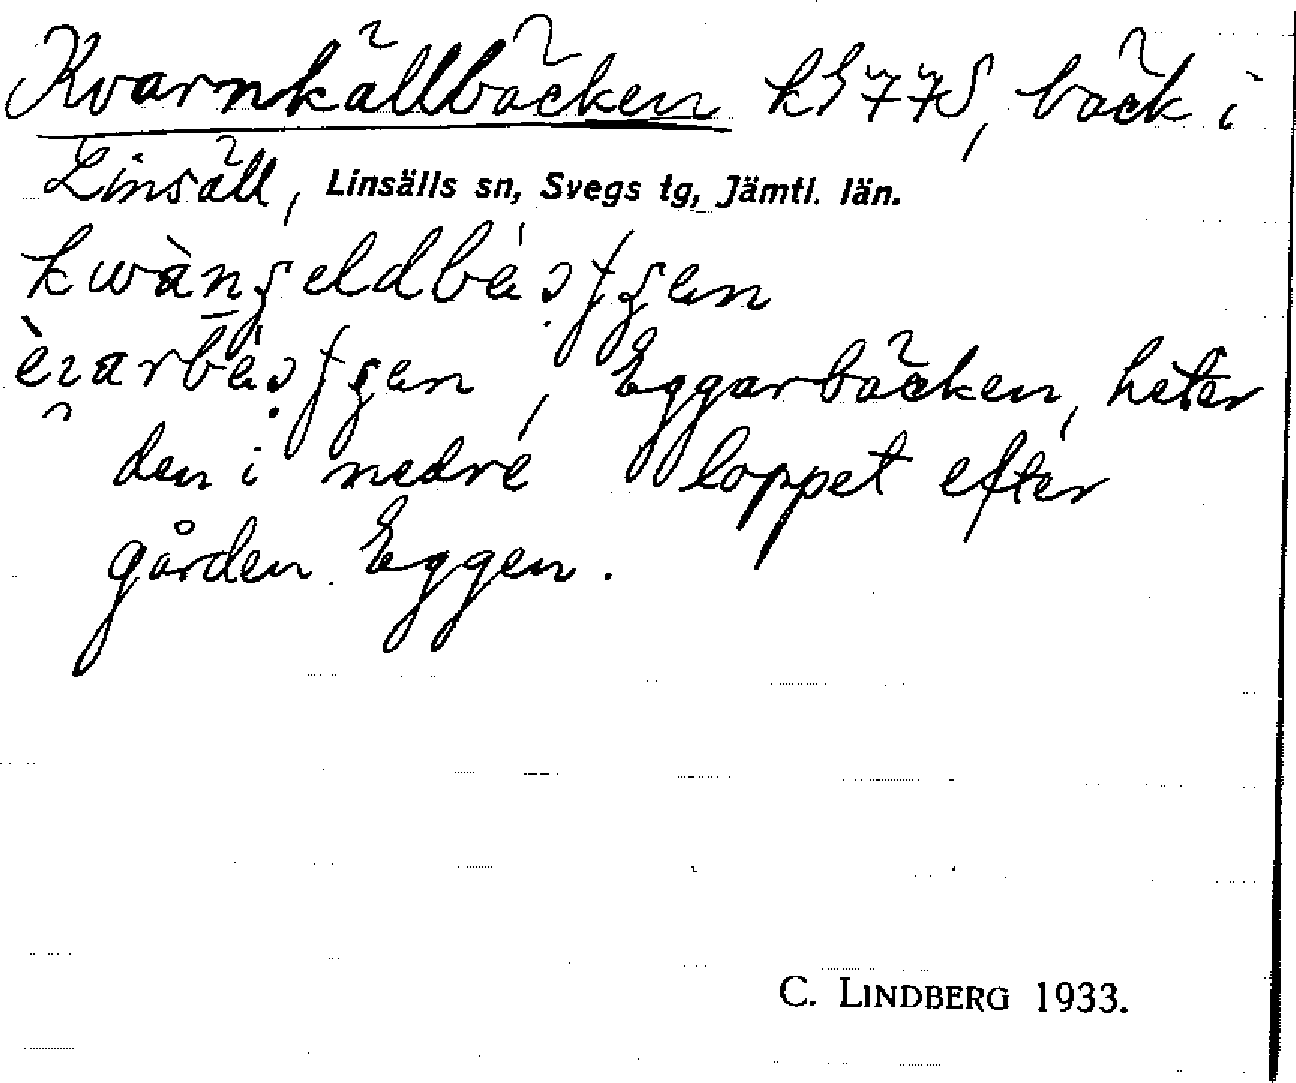 Kvarnkällbäcken kS77S, bäck i
Linsäll, Linsälls sn, Svegs tg, Jämtl. län.
Eggarbäcken, heter
den i nedre loppet efter
gården Eggen.
C. LINDBERG 1933.